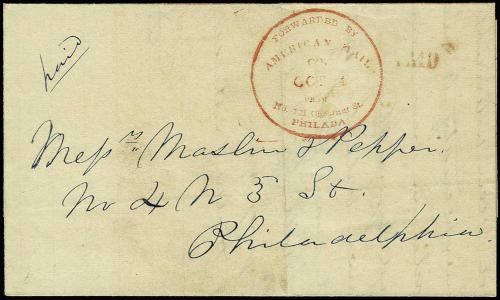 paid
FORWARDED BY
AMERICAN MAIL
CO.
FROM
No. 101 Chesnut St.
PHILADA
PAID
Messrs Maslin & Pepper.
No 4 N 5 St.
Philadelphia